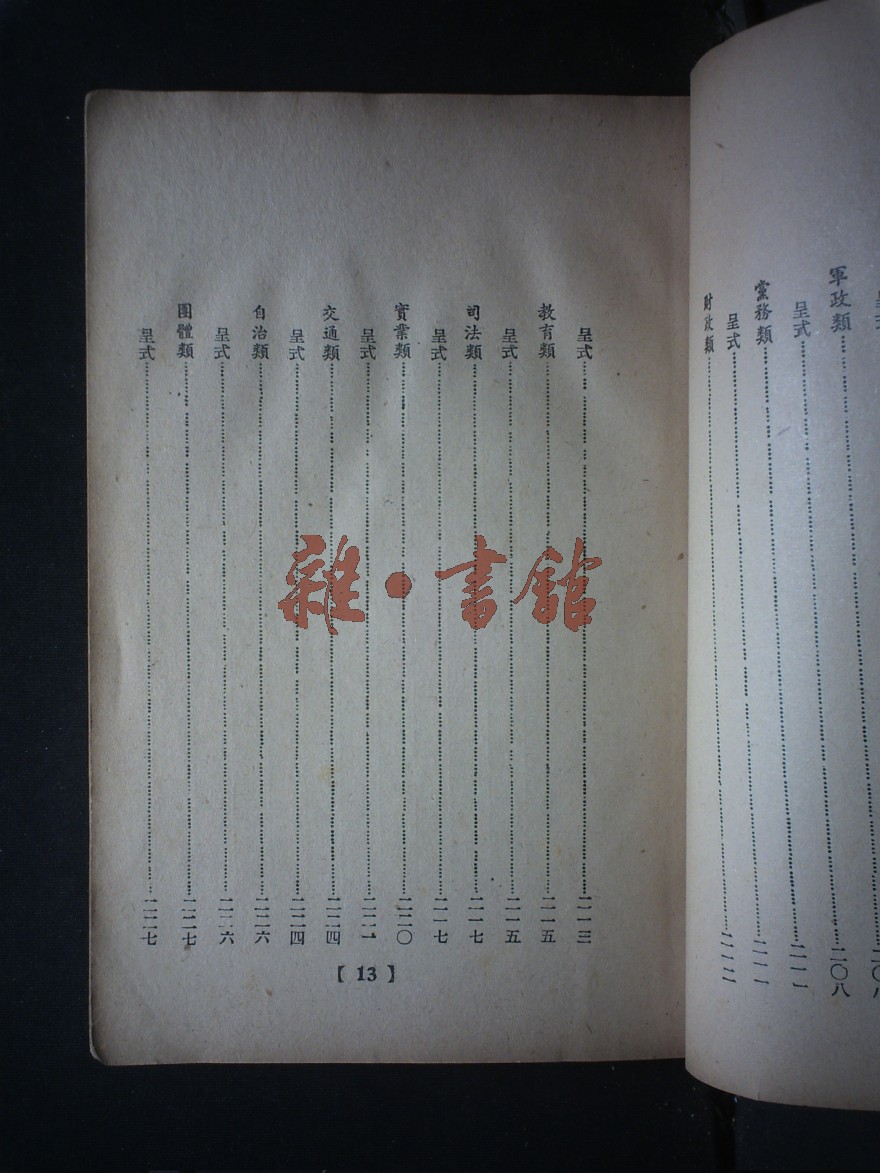 軍政類……二〇八
呈式……二一一
黨務類……二一一
呈式……二一二
財政類……
呈式……二一三
教育類……二一五
呈式……二一五
司法類……二一七
呈式……二一七
實業類……二二〇
呈式……二二一
交通類……二二四
呈式……二二四
自治類……二二六
呈式……二二六
團體類……二二七
呈式……二二七
【 13 】
雜·書館